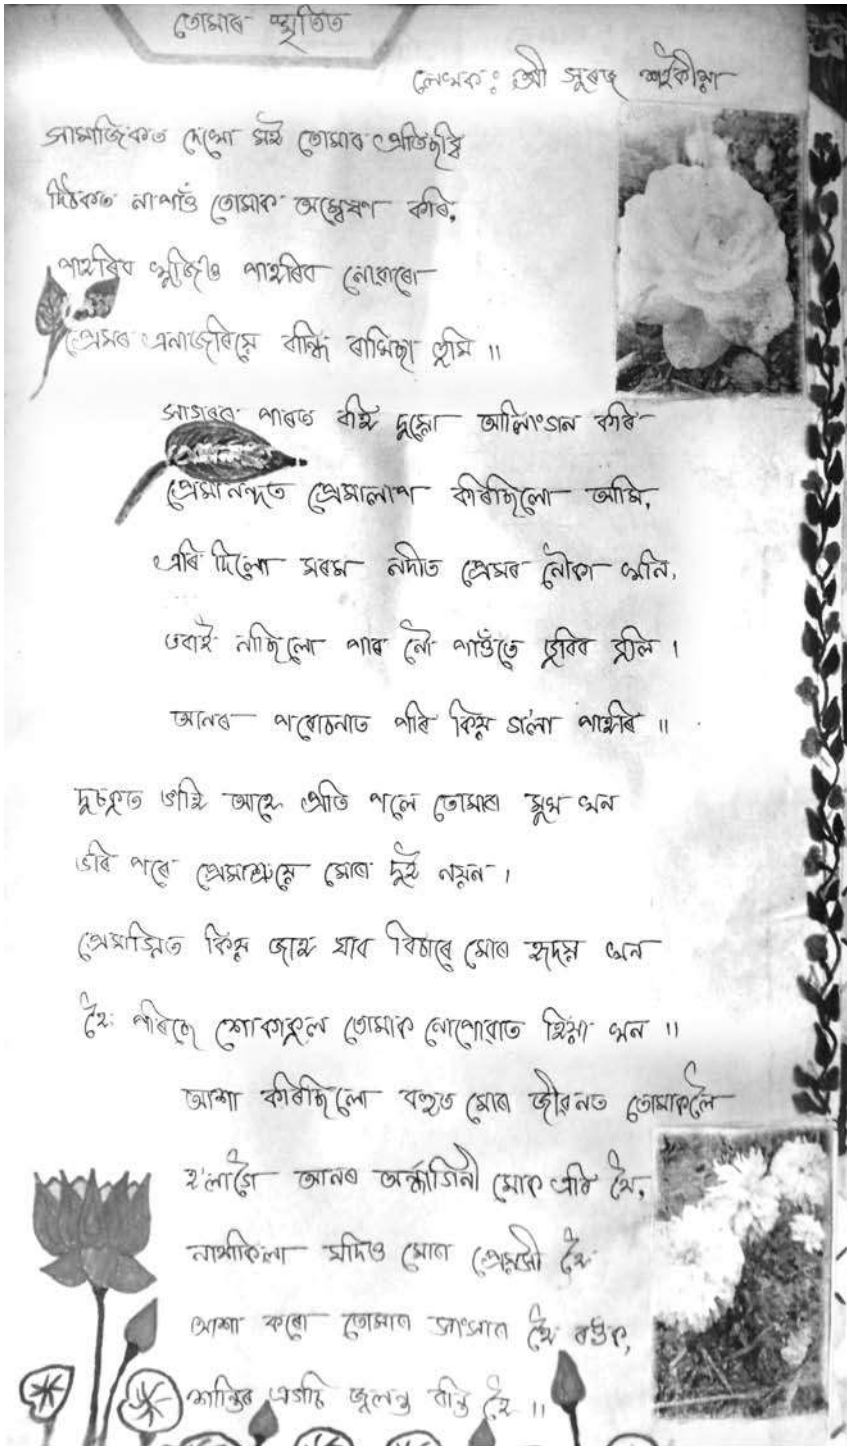 তোমাৰ স্মৃতিত
লেখক: শ্ৰী সুৰজ শইকীয়া
সামাজিকত দেখো মই তোমাৰ প্ৰতিছবি
দিঠকত নাপাওঁ তোমাক অন্বেষণ কৰি,
পাহৰিব খুজিও পাহৰিব নোৱাৰো
প্ৰেমৰ এনাজৰিয়ে বান্ধি ৰাখিছা তুমি ॥
সাগৰৰ পাৰত বহি দুয়ো আলিংগন কৰি
প্ৰেমানন্দত প্ৰেমালাপ কৰিছিলো আমি,
এৰি দিলো মৰম নদীত প্ৰেমৰ নৌকা খনি,
ভবাই নাছিলো পাৰ নৌ পাওঁতে ডুবিব বুলি ।
আনৰ প্ৰৰোচনাত পৰি কিয় গ'লা পাহৰি ॥
দুচকুত ভাঁহি আহে প্ৰতি পলে তোমাৰ মুখ খন
ভৰি পৰে প্ৰেমাশ্ৰুৱে মোৰ দুই নয়ন ।
প্ৰেমাগ্নিত কিয় জাহ যাব বিচাৰে মোৰ হৃদয় খন
হৈ পৰিছে শোকাকুল তোমাক নোপোৱাত হিয়া খন ॥
আশা কৰিছিলো বহুত মোৰ জীৱনত তোমাকলৈ
হ'লাগৈ আনৰ অৰ্দ্ধাঙ্গিনী মোক এৰি থৈ,
নাথাকিলা যদিও মোৰ প্ৰেয়সী হৈ
আশা কৰো তোমাৰ সংসাৰ হৈ ৰওক,
শান্তিৰ এগচি জ্বলন্ত বন্তি হৈ ॥